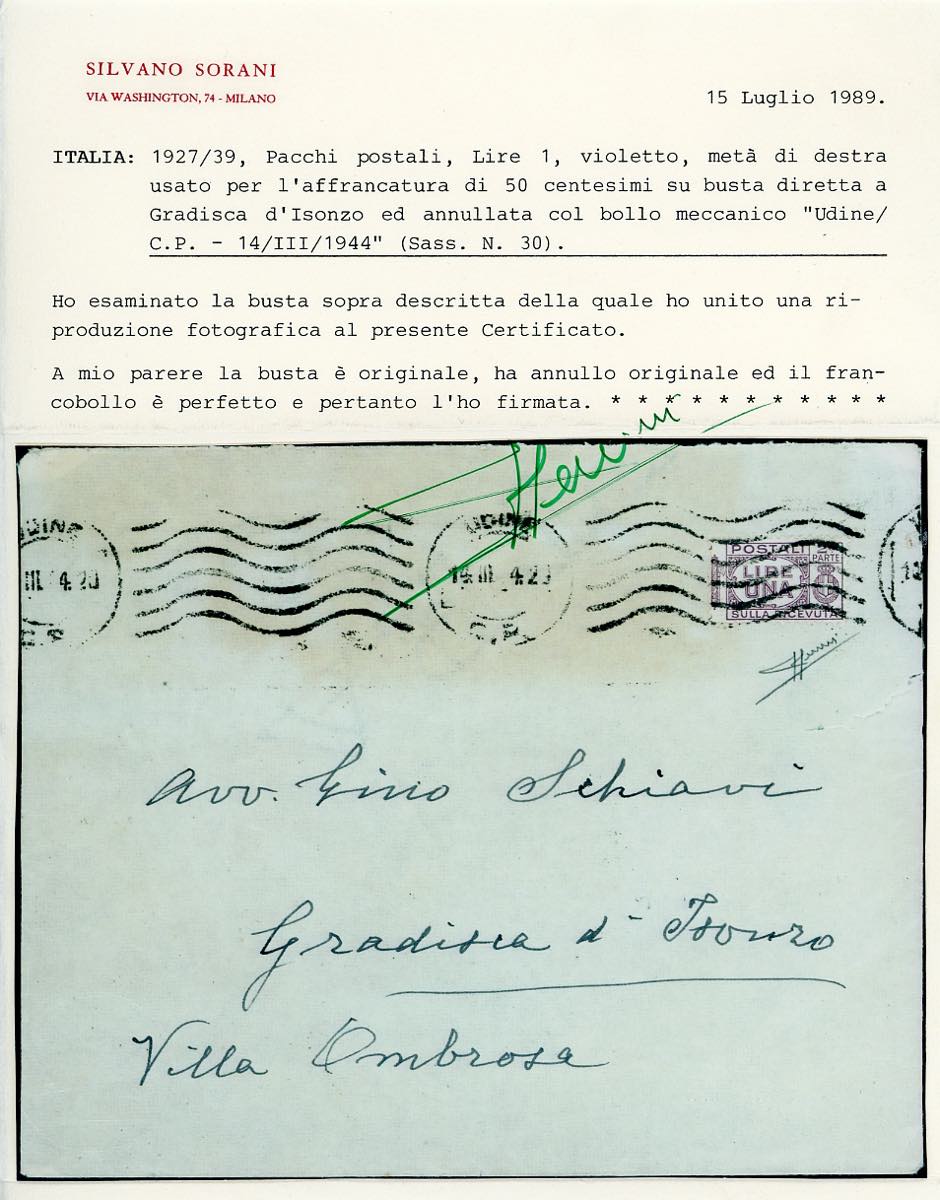 SILVANO SORANI
VIA WASHINGTON, 74 - MILANO
15 Luglio 1989.
ITALIA: 1927/39, Pacchi postali, Lire 1, violetto, metà di destra
usato per l'affrancatura di 50 centesimi su busta diretta a
Gradisca d'Isonzo ed annullata col bollo meccanico "Udine/
C.P. - 14/III/1944" (Sass. N. 30).
Ho esaminato la busta sopra descritta della quale ho unito una ri-
produzione fotografica al presente Certificato.
A mio parere la busta è originale, ha annullo originale ed il fran-
cobollo è perfetto e pertanto l'ho firmata. * * * * * * * * * * *
UDINE
UDINE
III 4.20
14 III 4.20
C.P.
POSTALI
PARTE
LIRE
UNA
SULLA RICEVUTA
Avv. Gino Schiavi
Gradisca d'Isonzo
Villa Ombrosa